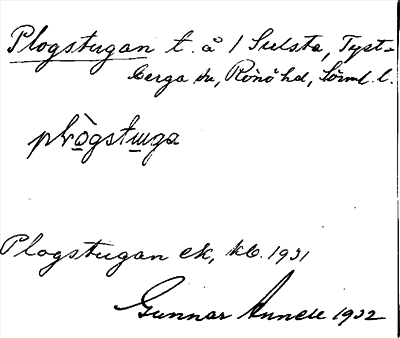 Plogstugan t. å 1 Sulsta, Tyst-
berga sn, Rönö hd, Sörml. l.
plògstuga
Plogstugan ek, kb. 1931
Gunnar Annell 1932